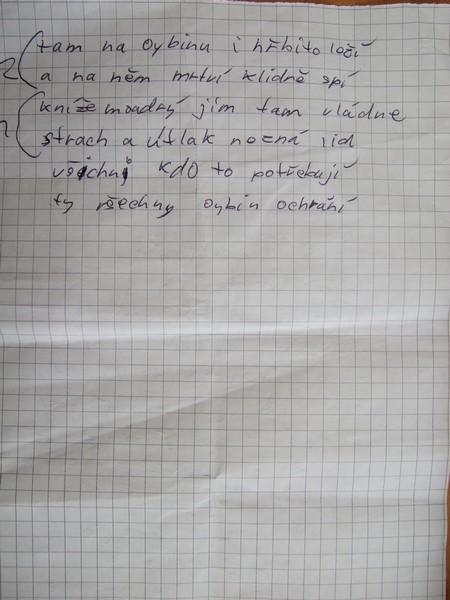 tam na oybinu i hřbito loží
a na něm mrtví klidně spí
kníže moudrý jim tam vládne
strach a útlak nezná lid
všichni kdo to potřebují
ty všechny oybin ochrání